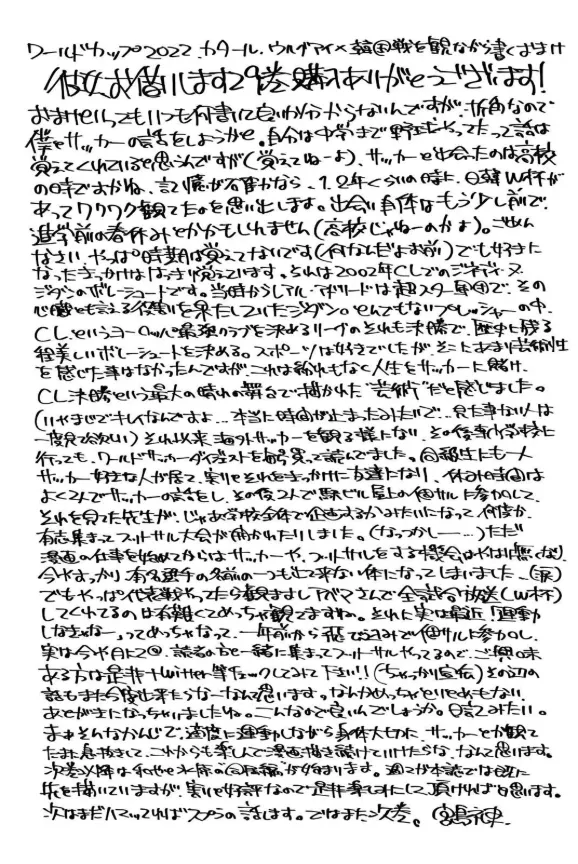 ワールドカップ2022.カタール.ウルグアイ×韓国戦を観ながら書くおまけ
彼女お借りします29巻購入ありがとうございます!
おまけといってもいつも何書いて良いか分からないんですが、折角なので
僕とサッカーの話をしようかと。自分は中学まで野球やってたって話は
覚えてくれていると思うんですが(覚えてねーよ)、サッカーと出会ったのは高校
の時ですかね、記憶が確かなら、1.2年くらいの時に、日韓W杯が
あってワクワク観てたのを思い出します。出会い自体はもう少し前で、
進学前の春休みとかかもしれません(高校じゃねーのかよ)。ごめん
なさい、やっぱ時期は覚えてないです(何なんだよお前)でも好きに
なったきっかけははっきり覚えています。それは2002年CLでのジネディーヌ・
ジダンのボレーシュートです。当時からレアル・マドリードは超スター軍団で、その
心臓とも言える役割を果たしていたジダン。とんでもないプレッシャーの中、
CLというヨーロッパ最強のクラブを決めるリーグのそれも決勝で、歴史に残る
程美しいボレーシュートを決める。スポーツは好きでしたが、そこにあまり芸術性
を感じた事はなかったんですが、これは紛れもなく人生をサッカーに賭け、
CL決勝という最大の晴れの舞台で描かれた"芸術"だと感じました。
(いやまじでキレイなんですよ…本当に時間が止まったみたいで…見た事ない人は
一度見て欲しい)それ以来、海外サッカーを観る様になり、その後専門学校に
行っても、ワールドサッカーダイジェストを毎号買って読んでました。同級生にも一人
サッカー好きな人が居て、実はそれをきっかけに友達になり、休み時間は
よく2人でサッカーの話をし、その後2人で駅ビル屋上の個サルに参加して、
それを見てた先生が、じゃあ学校全体で企画するかみたいになって何度か、
有志集まってフットサル大会が開かれたりしました。(なつかしー…)ただ
漫画の仕事を始めてからはサッカーや、フットサルをする機会はやはり無くなり、
今やすっかり有名選手の名前の一つも出て来ない体になってしまいました…(涙)
でもやっぱ代表戦やってたら観ますしアベマさんで全試合放送(W杯)
してくれてるのは有難くてめっちゃ観てますね。それに実は最近「運動
しなきゃなー」ってめっちゃなって、一年前から飛び込みで個サルに参加し、
実は今や月に2回、読者の方と一緒に集まってフットサルやってるので、ご興味
ある方は是非Twitter等チェックしてみて下さい!!(ちゃっかり宣伝)その辺の
話もまた今度出来たらなーなんて思います。なんかめっちゃとりとめもない
あとがきになっちゃいましたね。こんなので良いんでしょうか。日記みたい。
まぁそんなかんじで、適度に運動しながら身体大切に、サッカーとか観て
たまに息抜きして、これからも楽しんで漫画描き続けていけたらな、なんて思います。
次巻以降は和也と水原の"同居編"が始まります。週マガ本誌では既に
先を描いていますが、実に好評なので是非楽しみにして頂ければと思います。
次はまだハマッてればスプラの話します。ではまた次巻。宮島神.